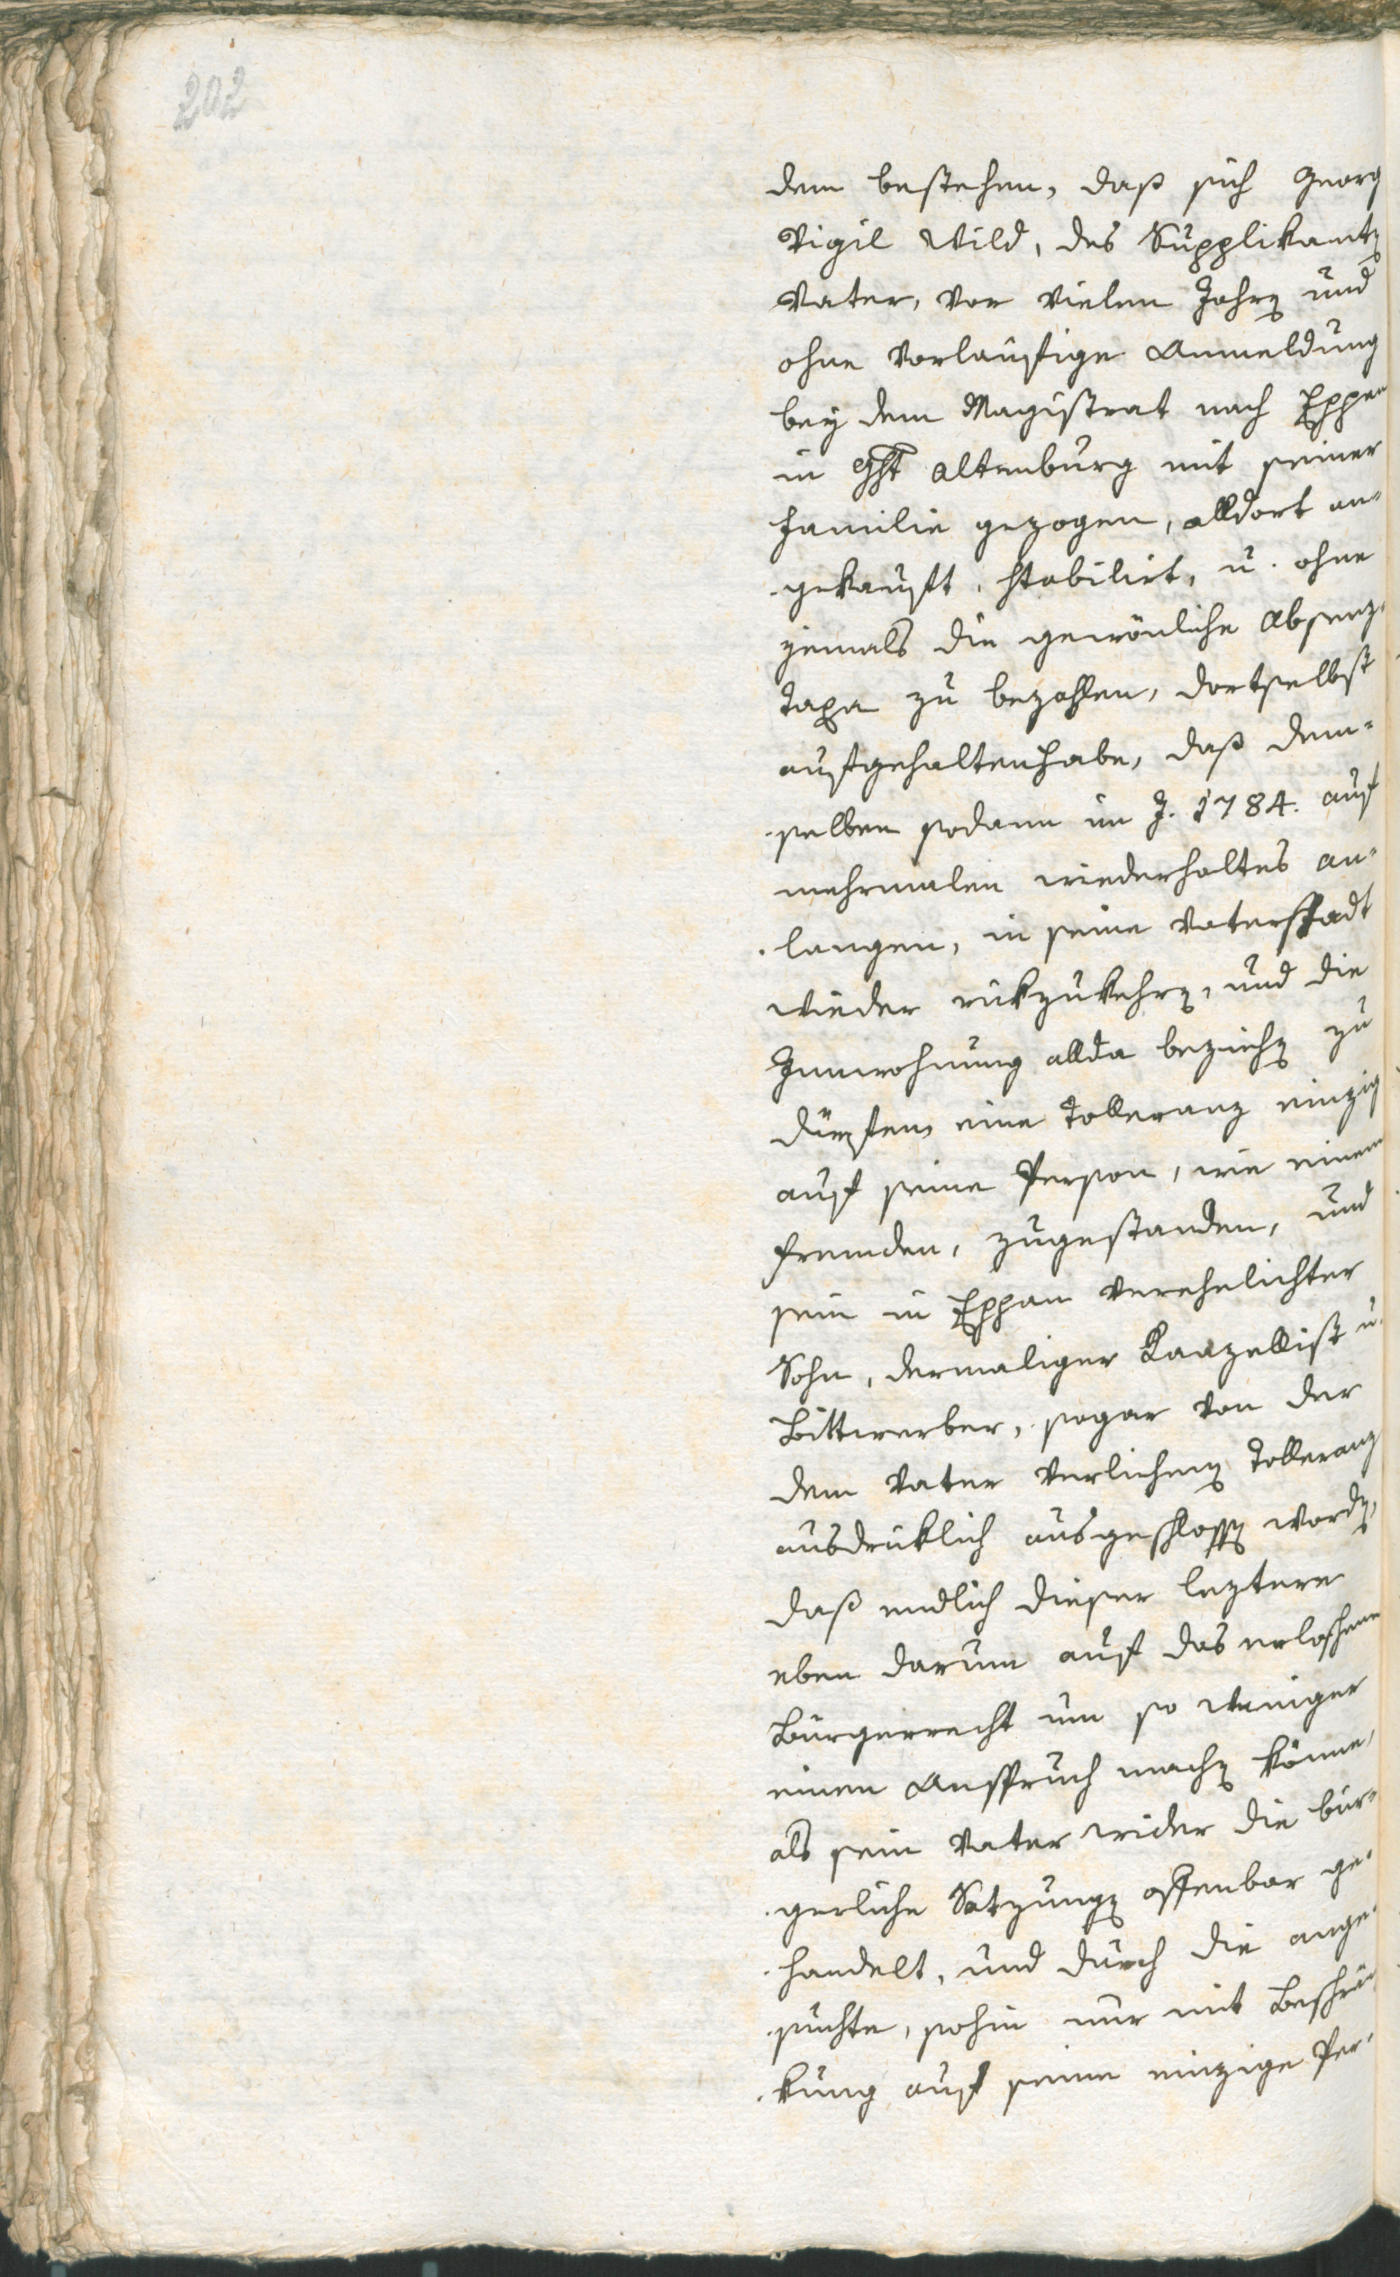 202
dem bestehen, daß sich Georg
Vigil Wild, des Supplikanten
Vater, vor vielen Jahren und
ohne vorläufige Anmeldung
bey dem Magistrat nach Eppan
in Ght Altenburg mit seiner
Familie gezogen, alldort an-
gekauft, stabilirt, u. ohne
jemals die gewönliche Absenz-
taxa zu bezahlen, dortselbst
aufgehalten habe, daß dem-
selben sodann im J. 1784. auf
mehrmalen wiederholtes an-
langen, in seine Vaterstadt
wieder rükzukehren, und die
Innwohnung allda beziehen zu
dürfen, eine Tolleranz einzig
auf seine Person, wie einem
fremden, zugestanden, und
sein in Eppan verehelichter
Sohn, dermaliger Kanzellist u.
Bittwerber, sogar von der
dem Vater verlichenen Tolleranz
ausdruklich ausgeschlossen worden,
daß endlich dieser leztere
eben darum auf das erloschene
Bürgerrecht um so weniger
einen Anspruch machen könne,
als sein Vater wider die bür-
gerliche Satzungen offenbar ge-
handelt, und durch die ange-
suchte, sohin nur mit Beschrän
kung auf seine einzige Per-